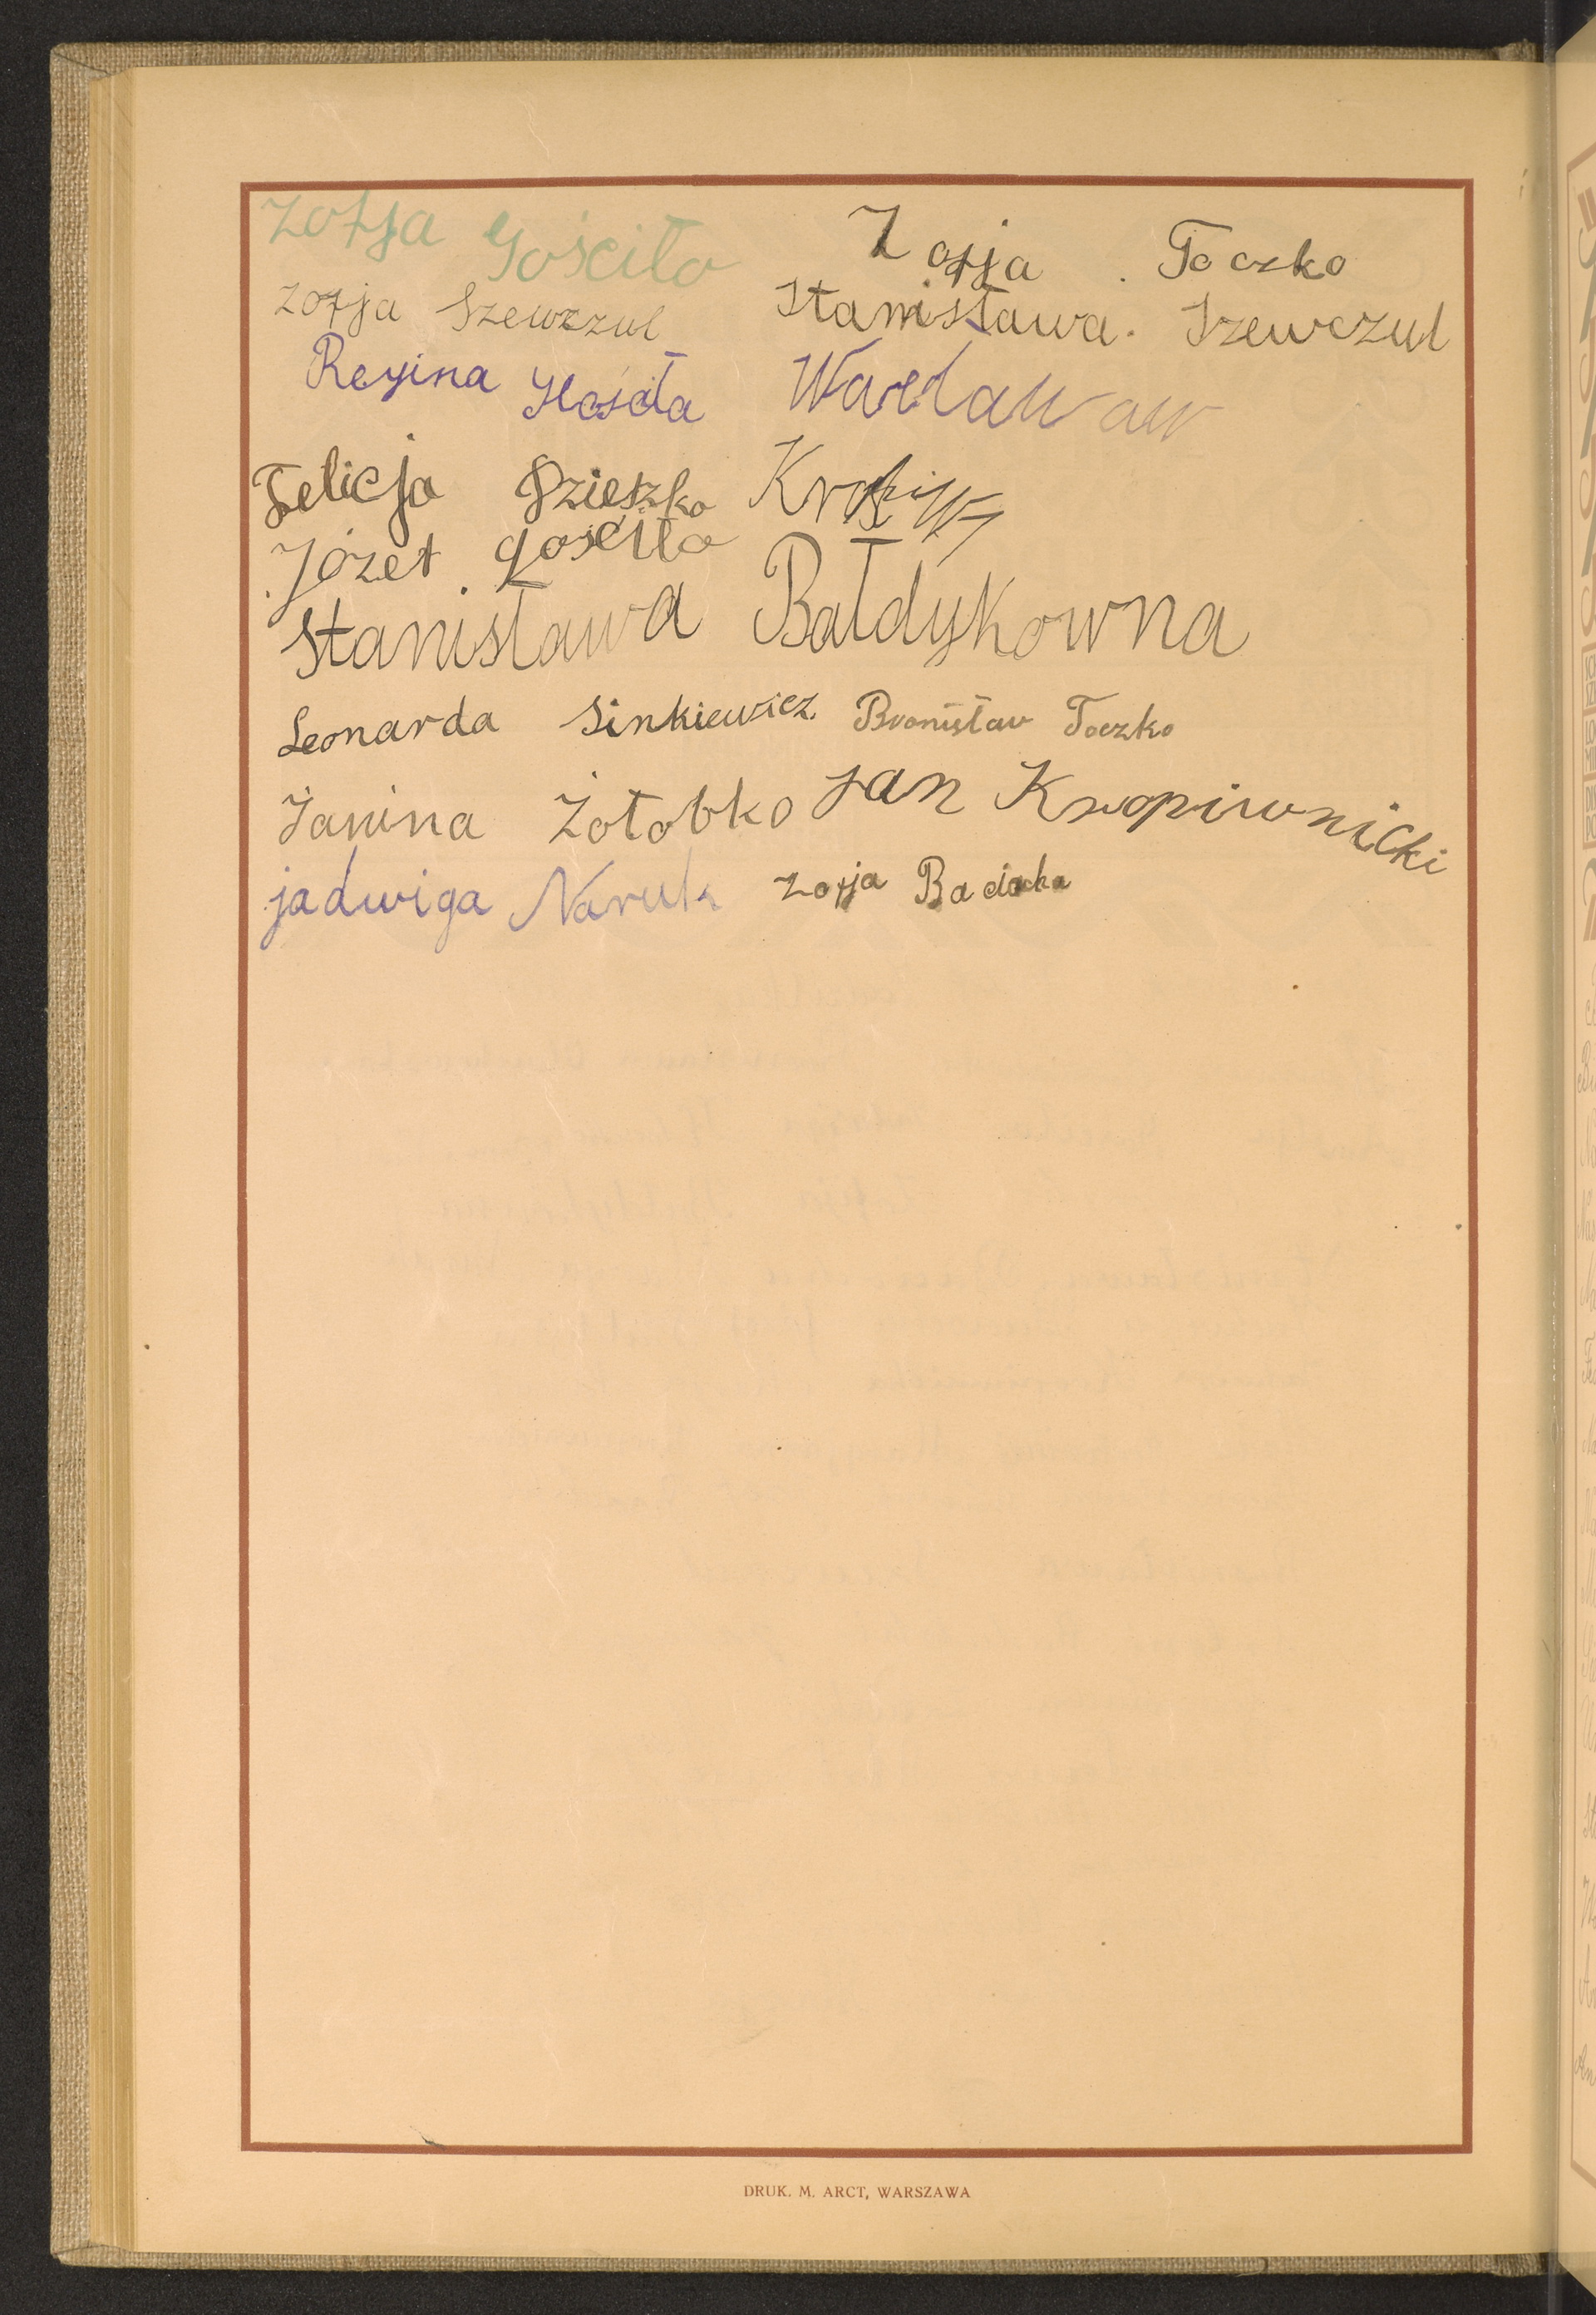 Zofja Gościło Zofja Toczko
Zofja Szewczul Stanisława. Szewczul
Regina Wacław
Felicja Dzieszko
Józef Gościło
Stanisława Bałdykowna
Leonarda Sinkiewicz Bronisław Toczko
Janina Żołobko Jan Kropiwnicki
jadwiga Naruk Zofja
DRUK. M. ARCT, WARSZAWA